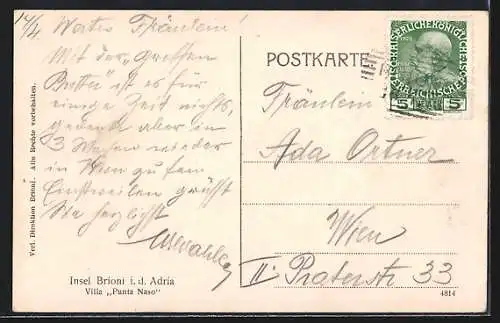 14/4.
Wertes Fräulein!
Mit der „großen
Butte" ist es für
einige Zeit nichts,
gedenke aber in
3 Wochen wieder
in Wien zu sein
Einstweilen grüßt
Sie herzlichst
POSTKARTE
Fräulein
Ada Ortner
Wien
II. Praterstr 33
KAISERLICHE KÖNIGLICHE
ÖSTERREICHISCHE
5 5
Verl. Direktion Brioni. Alle Rechte vorbehalten.
Insel Brioni i. d. Adria
Villa „Punta Naso"
4814